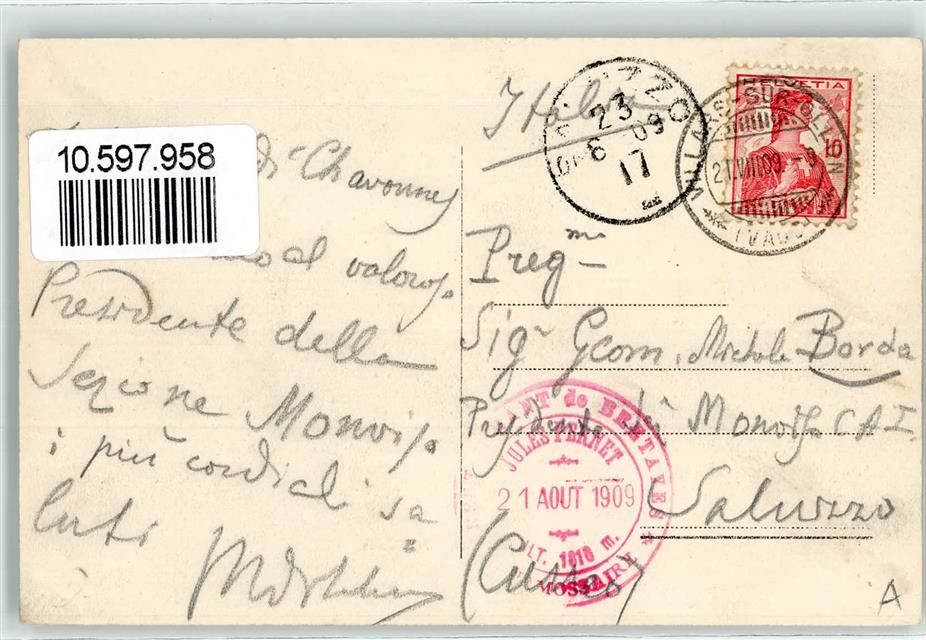 10.597.958
di Chavonnes
al valoroso
Presidente della
Sezione Monviso
i più cordiali sa
luti
Italia
SALUZZO
23
8 09
17
HELVETIA
10
VILLARS-SUR-OLLON
21.VIII.09. 9
(VAUD)
Preg mi
Sig Geom. Michele Borda
Presidente di Monviso C A I
Saluzzo
(Cuneo)
RESTAURANT de BRETAYES
JULES PERNET
21 AOUT 1909
ALT. 1810 m.
CHAMOSSAIRE
A